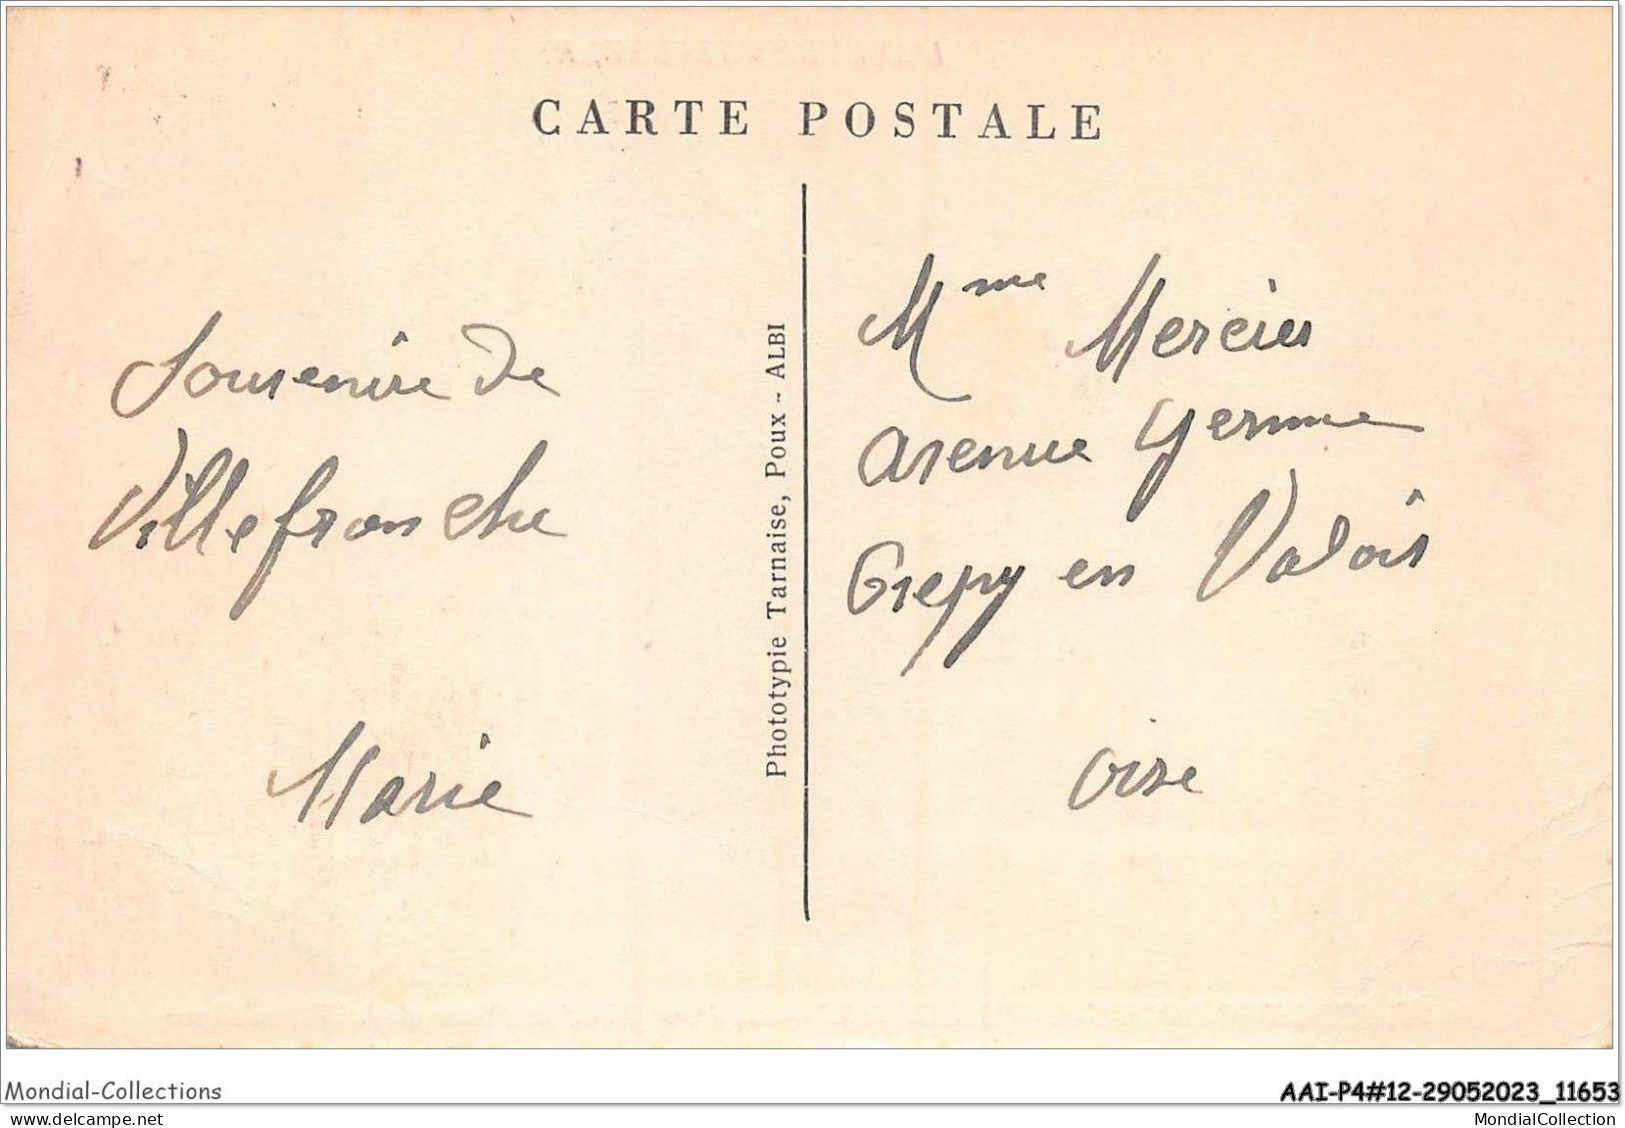 CARTE POSTALE
Souvenir de
Villefranche
Marie
Phototypie Tarnaise, Poux - ALBI
Mme Mercier
avenue
Crepy en Valois
oise
Mondial-Collections
AAI-P4#12-29052023_11653
www.delcampe.net
MondialCollection